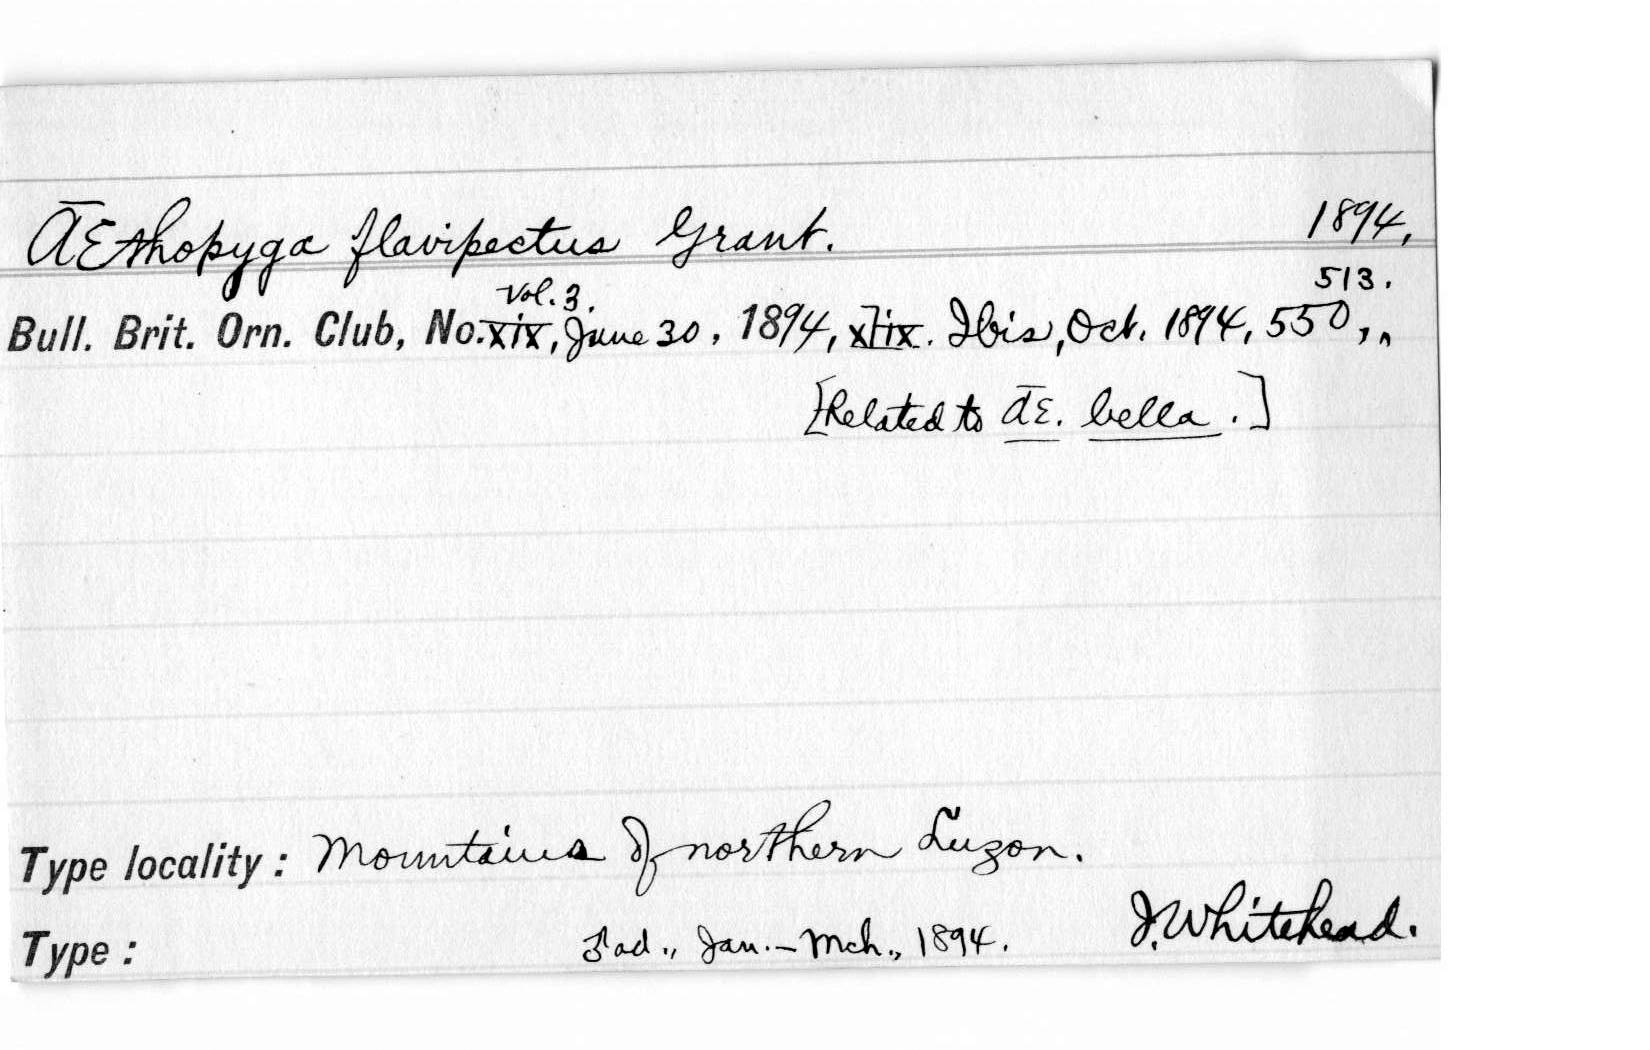 Æthopyga flavipectus Grant. 1894,
Vol. 3. 513.
Bull. Brit. Orn. Club, No. xix, June 30, 1894, xlix. Ibis, Oct. 1894, 550,
[Related to Æ. bella.]
Type locality: Mountains of northern Luzon.
Type: ad., Jan.-Mch., 1894. J. Whitehead.